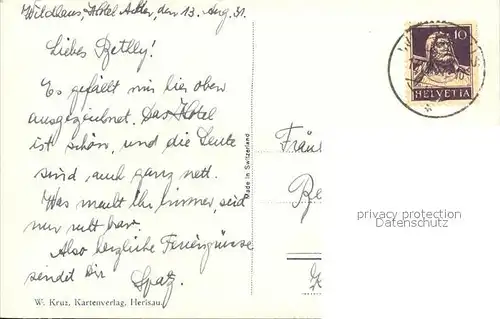 Wildhaus, Hotel Acker, den 13. Aug. 31.
Liebes Betlly!
Es gefällt mir hier oben
ausgezeichnet. Das Hotel
ist schön, und die Leute
sind, auch ganz nett.
Was macht Ihr immer, seid
nur nett
Also herzliche Feriengrüsse
sendet Dir
Spatz.
W. Kruz, Kartenverlag, Herisau.
Made in Switzerland
10
HELVETIA
Fräul
Be
privacy protection
Datenschutz